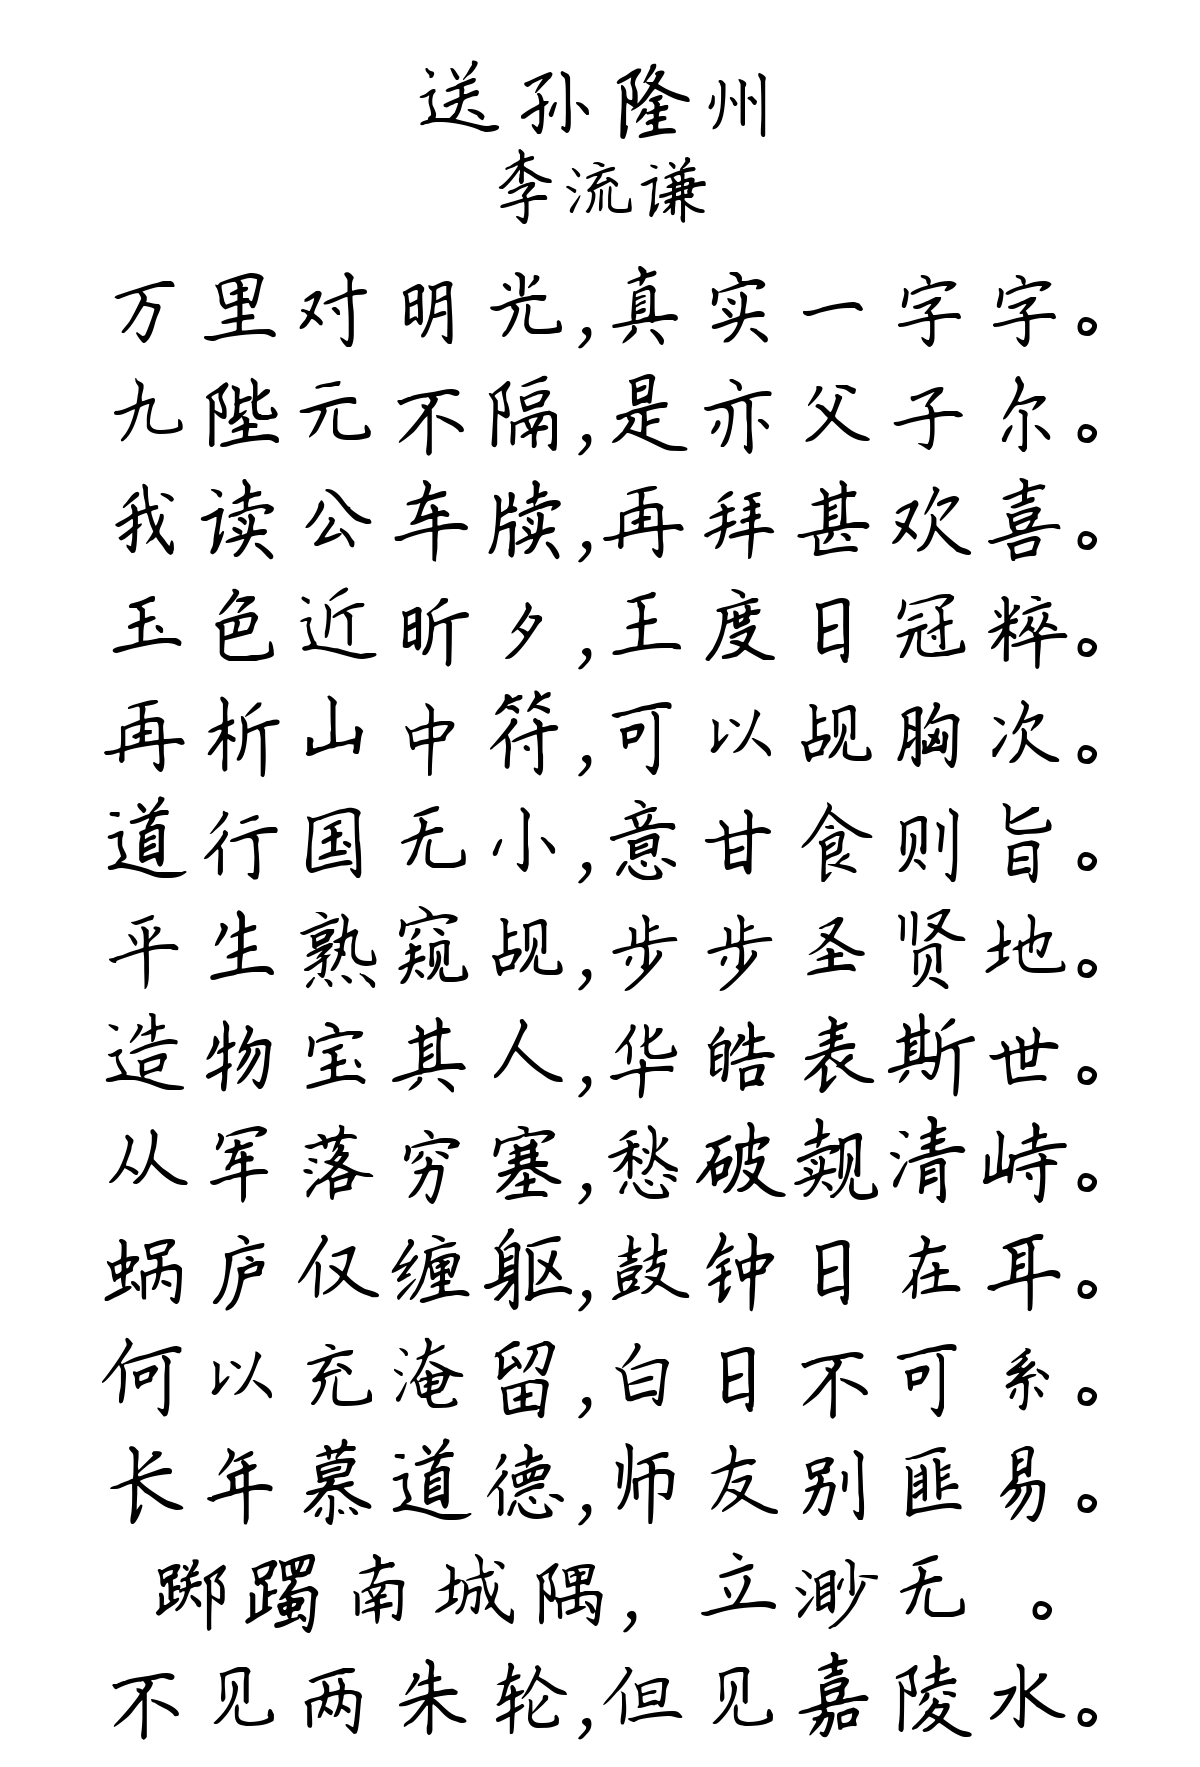 送孙隆州
李流谦
万里对明光,真实一字字。
九陛元不隔,是亦父子尔。
我读公车牍,再拜甚欢喜。
玉色近昕夕,王度日冠粹。
再析山中符,可以觇胸次。
道行国无小,意甘食则旨。
平生熟窥觇,步步圣贤地。
造物宝其人,华皓表斯世。
从军落穷塞,愁破觌清峙。
蜗庐仅缠躯,鼓钟日在耳。
何以充淹留,白日不可系。
长年慕道德,师友别匪易。
踯躅南城隅,立渺无 。
不见两朱轮,但见嘉陵水。